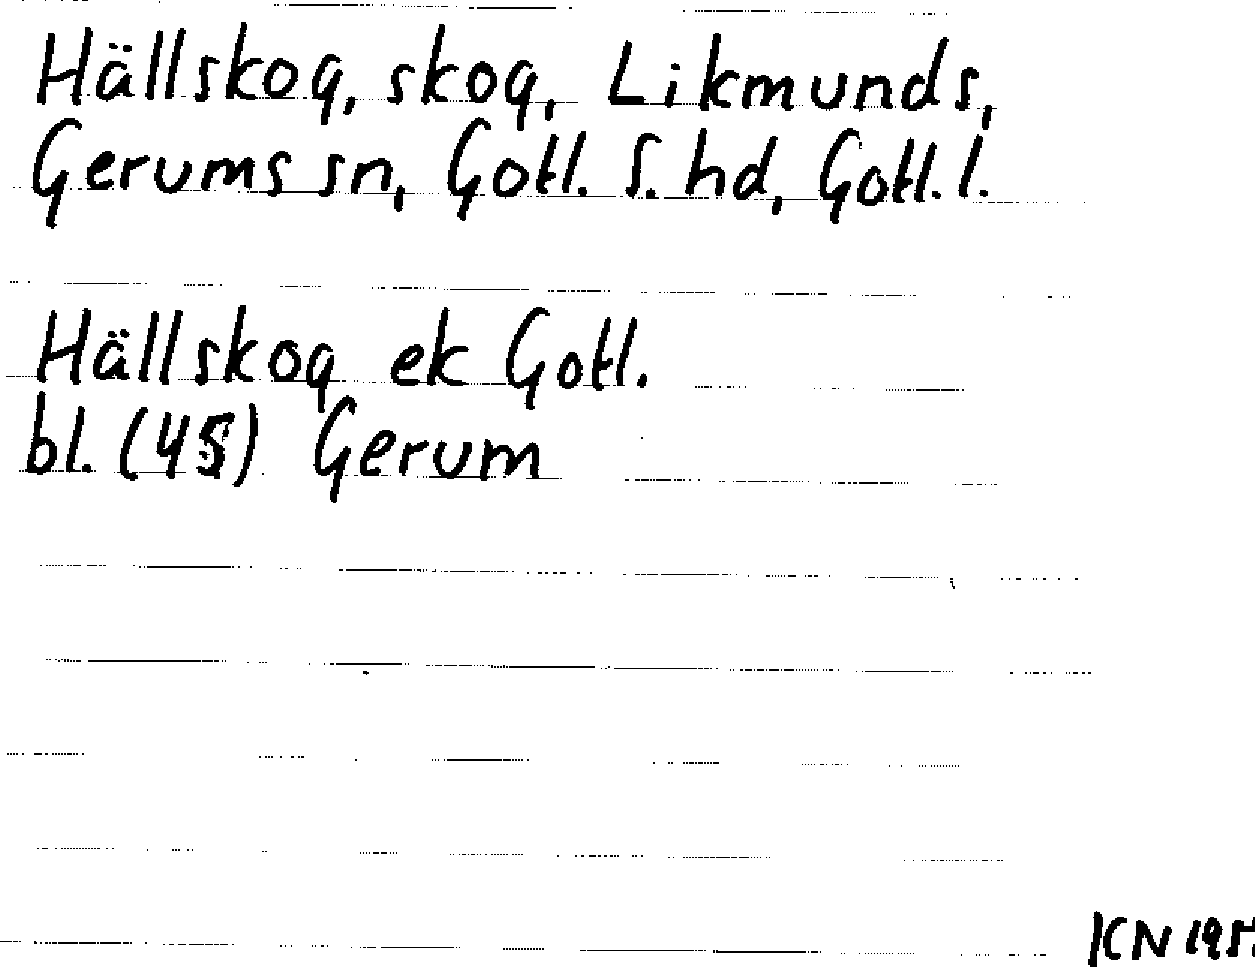 Hällskog, skog, Likmunds,
Gerums sn, Gotl. S. hd, Gotl. l.
Hällskog ek Gotl.
bl. (45) Gerum
ICN